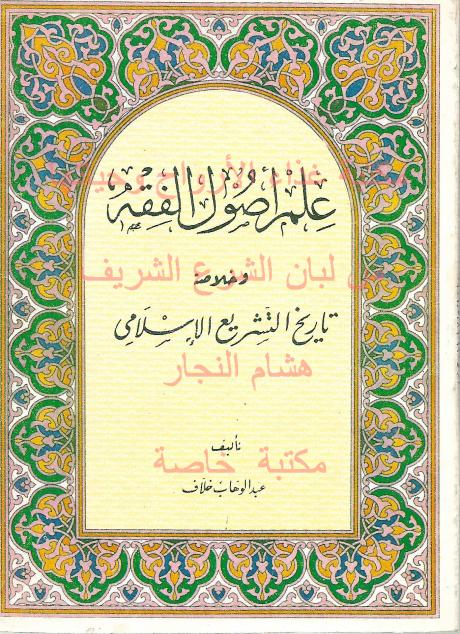 غذاء الأرواح
علم أصول الفقه
لبان الشرع الشريف
وخلاصة
تاريخ التشريع الإسلامي
هشام النجار
تأليف
مكتبة خاصة
عبد الوهاب خلاف